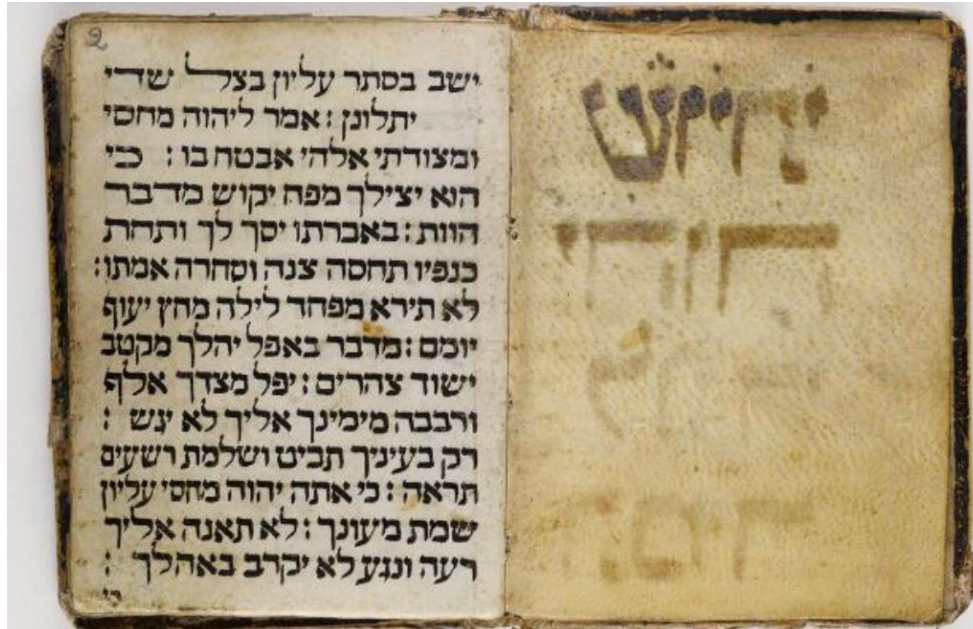 2
ישב בסתר עליון בצל שדי
יתלונן : אמר ליהוה מחסי
ומצודתי אלהי אבטח בו : כי
הוא יצילך מפח יקוש מדבר
הוות : באברתו יסך לך ותחת
כנפיו תחסה צנה וסחרה אמתו :
לא תירא מפחד לילה מחץ יעוף
יומם : מדבר באפל יהלך מקטב
ישוד צהרים : יפל מצדך אלף
ורבבה מימינך אליך לא יגש :
רק בעיניך תביט ושלמת רשעים
תראה : כי אתה יהוה מחסי עליון
שמת מעונך : לא תאנה אליך
רעה ונגע לא יקרב באהלך :
כי